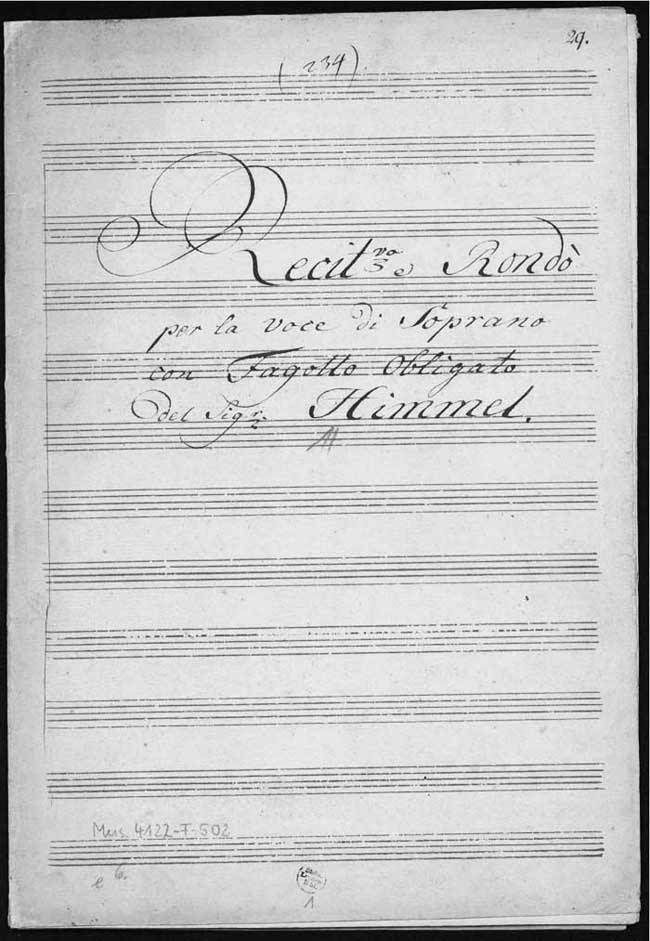 29.
(234).
Recit.vo e Rondò
per la voce di Soprano
con Fagotto Obligato
del Sigr. Himmel.
Mus. 4122-F-502
e 6.
1